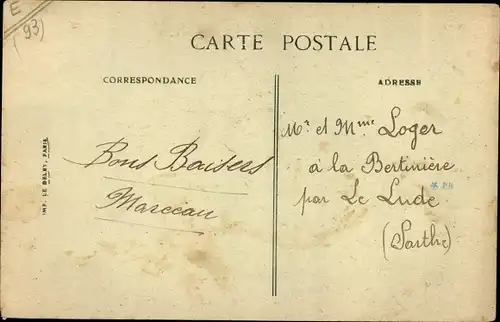 E
(93)
CARTE POSTALE
CORRESPONDANCE
ADRESSE
IMP. LE DELEY, PARIS
Bons Baisers
Marceau
Mr et Mme Loger
à la Bertinière
par Le Lude
(Sarthe)